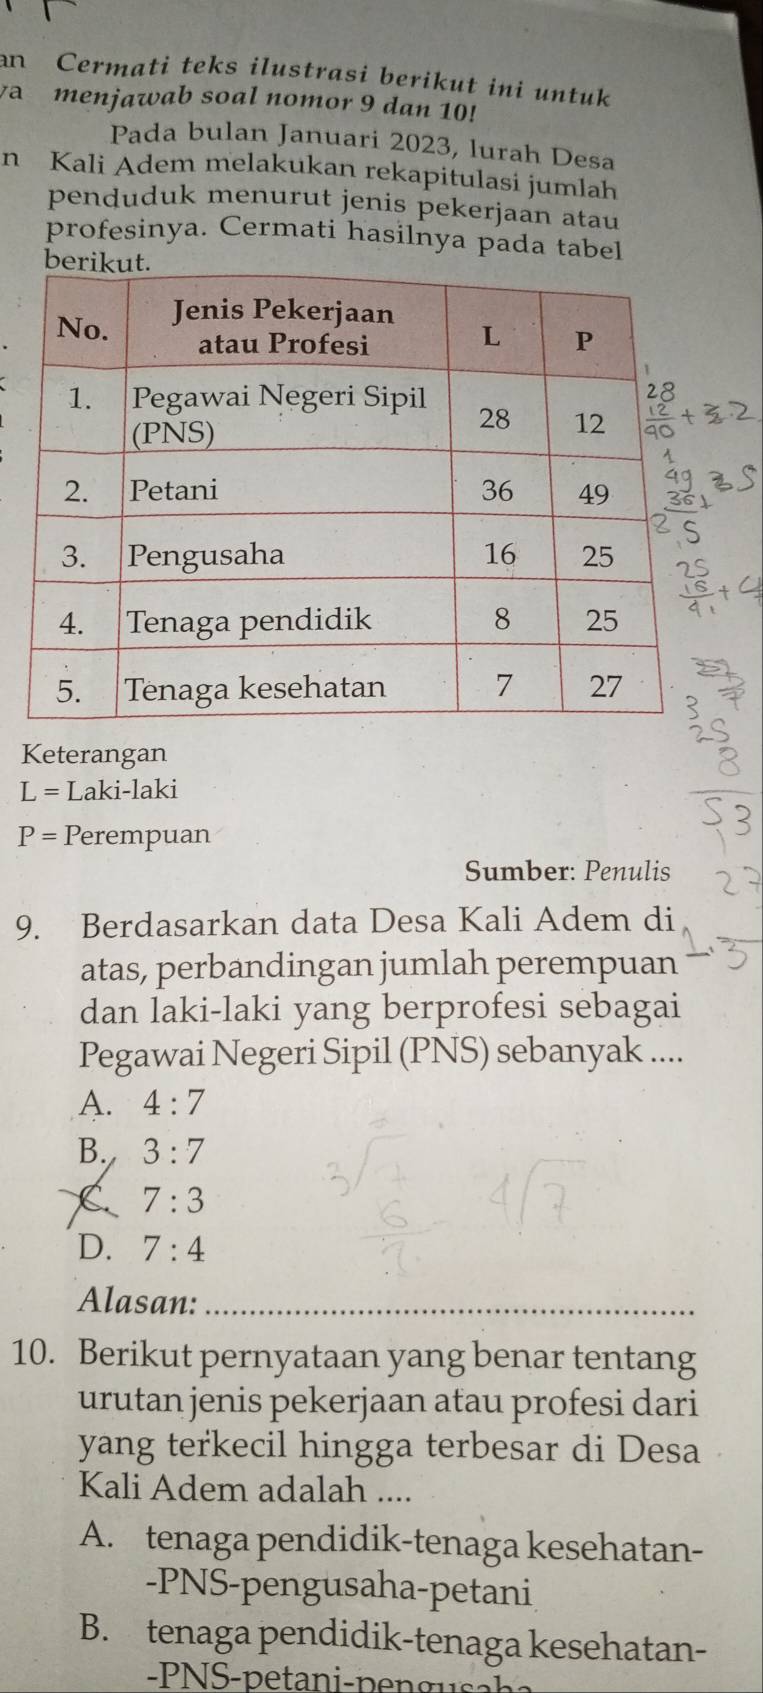 an Cermati teks ilustrasi berikut ini untuk
ya menjawab soal nomor 9 dan 10!
Pada bulan Januari 2023, lurah Desa
n Kali Adem melakukan rekapitulasi jumlah
penduduk menurut jenis pekerjaan atau
profesinya. Cermati hasilnya pada tabel
berikut.
No. Jenis Pekerjaan atau Profesi L P
1. Pegawai Negeri Sipil (PNS) 28 12
28
12 +
40
2. Petani 36 49
1
49
36 +
85
3. Pengusaha 16 25
25
16 +
41
4. Tenaga pendidik 8 25
5. Tenaga kesehatan 7 27
25
8
53
27
Keterangan
L = Laki-laki
P = Perempuan
Sumber: Penulis
9. Berdasarkan data Desa Kali Adem di
atas, perbandingan jumlah perempuan
dan laki-laki yang berprofesi sebagai
Pegawai Negeri Sipil (PNS) sebanyak ....
A. 4 : 7
B. 3 : 7
C. 7 : 3
D. 7 : 4
3 7
6
4 7
Alasan: ..........
10. Berikut pernyataan yang benar tentang
urutan jenis pekerjaan atau profesi dari
yang terkecil hingga terbesar di Desa
Kali Adem adalah ....
A. tenaga pendidik-tenaga kesehatan-
-PNS-pengusaha-petani
B. tenaga pendidik-tenaga kesehatan-
-PNS-petani-pengusaha